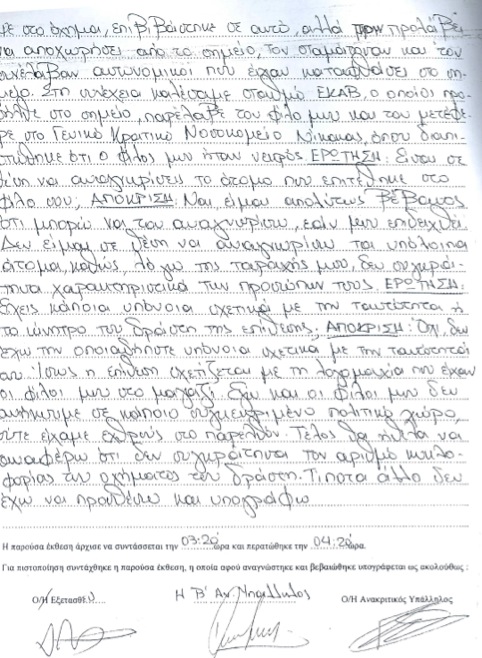 με στο όχημα, επιβιβάστηκε σε αυτό, αλλά πριν προλάβει
να αποχωρήσει από το σημείο, τον σταμάτησαν και τον
συνέλαβαν αστυνομικοί που είχαν καταφθάσει στο ση-
μείο. Στη συνέχεια καλέσαμε σταθμό ΕΚΑΒ, ο οποίος προ-
ήλθε στο σημείο, παρέλαβε τον φίλο μου και τον μετέφε-
ρε στο Γενικό Κρατικό Νοσοκομείο Νίκαιας, όπου διαπι-
στώθηκε ότι ο φίλος μου ήταν νεκρός ΕΡΩΤΗΣΗ: Είσαι σε
θέση να αναγνωρίσεις το άτομο που επιτέθηκε στο
φίλο σου; ΑΠΟΚΡΙΣΗ: Ναι είμαι απολύτως βέβαιος
ότι μπορώ να τον αναγνωρίσω, εάν μου επιδειχθεί.
Δεν είμαι σε θέση να αναγνωρίσω τα υπόλοιπα
άτομα, καθώς, λόγω της ταραχής μου, δεν συγκρά-
τησα χαρακτηριστικά των προσώπων τους. ΕΡΩΤΗΣΗ:
Έχεις κάποια υπόνοια σχετικά με την ταυτότητα ή
το κίνητρο του δράστη της επίθεσης; ΑΠΟΚΡΙΣΗ: Όχι δεν
έχω την οποιαδήποτε υπόνοια σχετικά με την ταυτότητά
του. Ίσως η επίθεση σχετίζεται με τη λογομαχία που είχαν
οι φίλοι μου στο μαγαζί. Εγώ και οι φίλοι μου δεν
ανήκουμε σε κάποιο συγκεκριμένο πολιτικό χώρο,
ούτε είχαμε εχθρούς στο παρελθόν. Τέλος θα ήθελα να
αναφέρω ότι δεν συγκράτησα τον αριθμό κυκλο-
φορίας του οχήματος του δράστη. Τίποτα άλλο δεν
έχω να προσθέσω και υπογράφω
Η παρούσα έκθεση άρχισε να συντάσσεται την 03:20 ώρα και περατώθηκε την 04:20 ώρα.
Για πιστοποίηση συντάχθηκε η παρούσα έκθεση, η οποία αφού αναγνώστηκε και βεβαιώθηκε υπογράφεται ως ακολούθως :
Ο/Η Εξετασθείς Η Β' Αν. Υπάλληλος Ο/Η Ανακριτικός Υπάλληλος